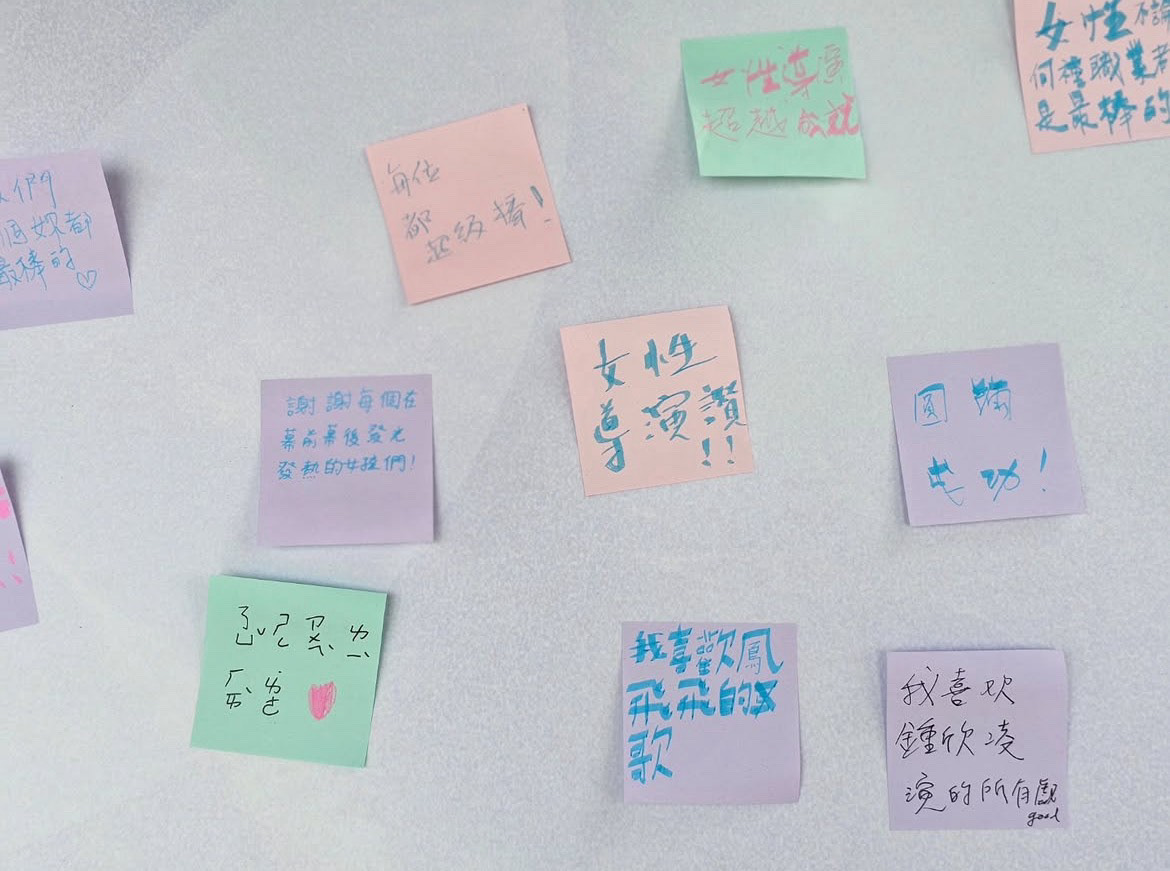 女性不論
何種職業都
是最棒的
女性導演
超越成就
每位
都超級棒!
們
都
最棒的♡
女性
導演讚
!!
圓滿
成功!
謝謝每個在
幕前幕後發光
發熱的女孩們!
我喜歡鳳
飛飛的
歌
我喜欢
鍾欣凌
演的所有戲
good